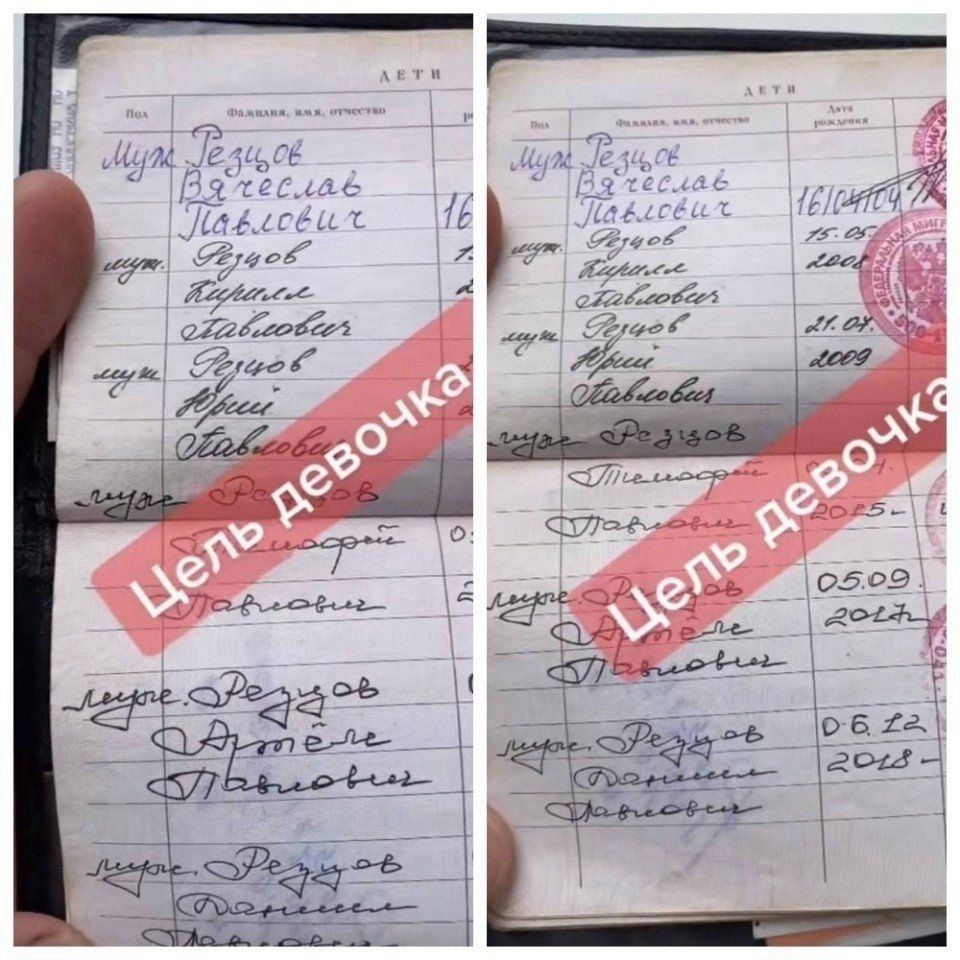 ДЕТИ
Пол Фамилия, имя, отчество
муж Резцов
Вячеслав
Павлович 16
муж. Резцов
Кирилл
Павлович
муж Резцов
Юрий
Павлович
муж Резцов
Тимофей
Павлович
муж. Резцов
Артём
Павлович
муж. Резцов
Даниил
Павлович
Цель девочка
ДЕТИ
Пол Фамилия, имя, отчество Дата
рождения
муж Резцов
Вячеслав
Павлович 16/04/04
муж. Резцов 15.05.
Кирилл 2008
Павлович
муж Резцов 21.07.
Юрий 2009
Павлович
муж Резцов
Тимофей
Павлович 2015
муж. Резцов 05.09.
Артём 2017
Павлович
муж. Резцов 06.12
Даниил 2018
Павлович
Цель девочка
ФЕДЕРАЛЬНАЯ МИГР
500